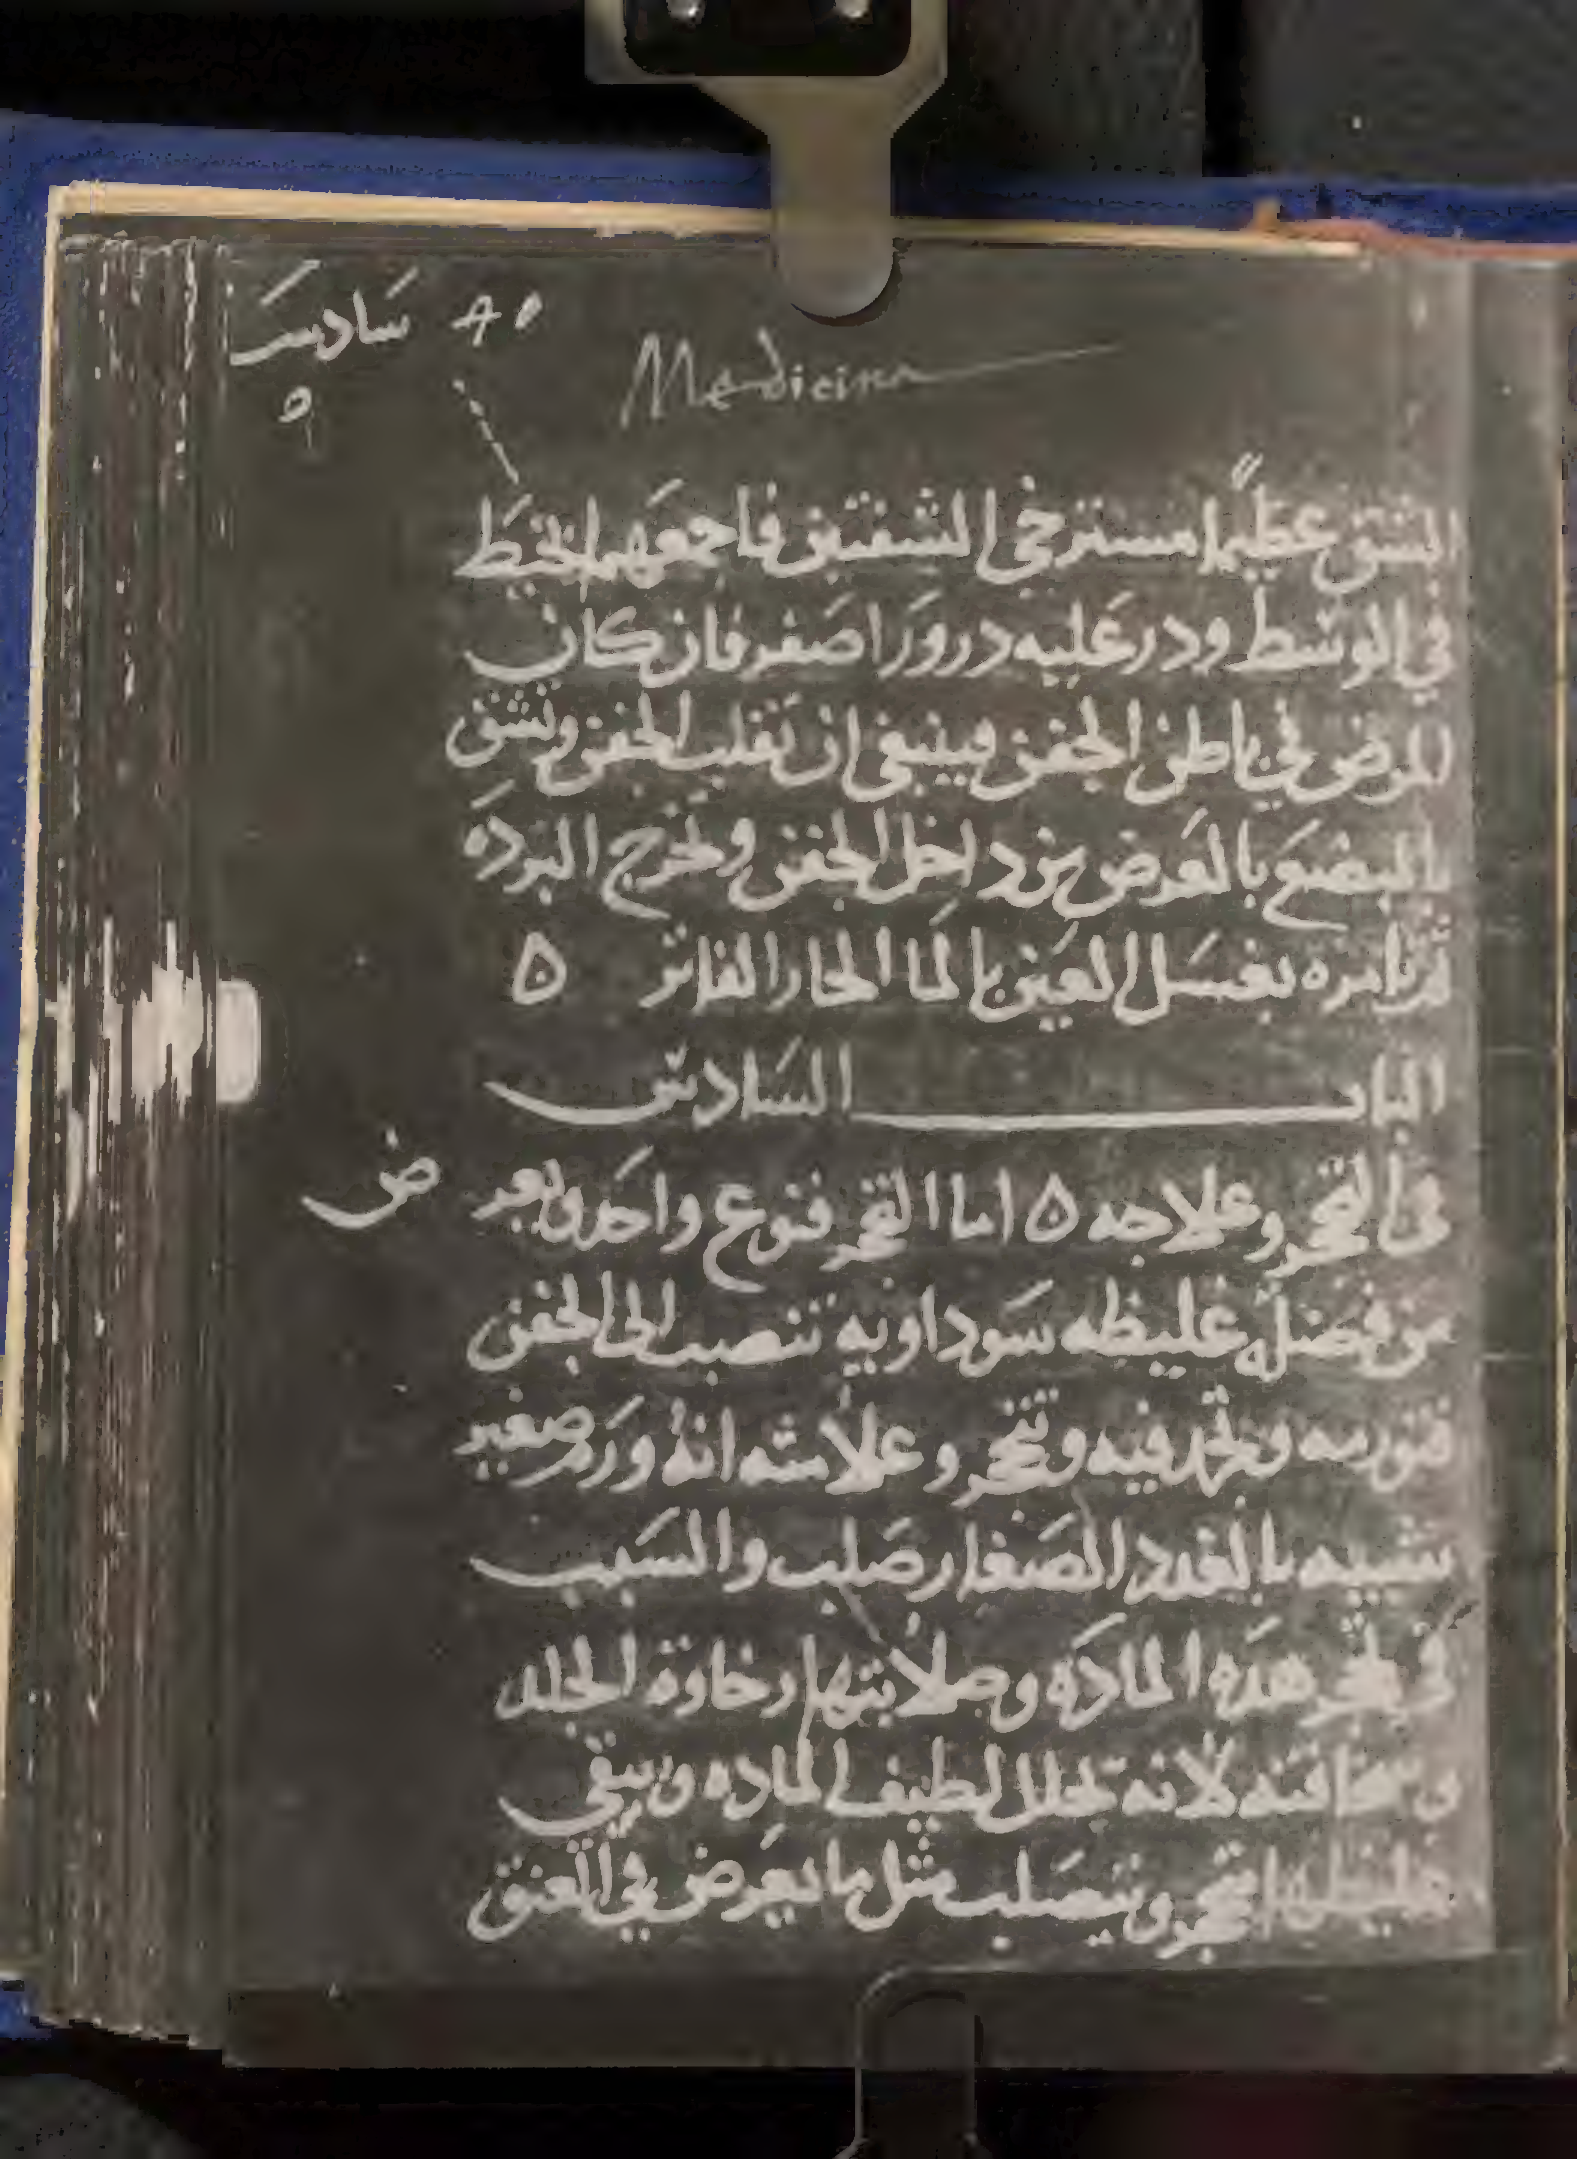 سادس
Medicina
الشق عظيما مسترخي الشفتين فاجمعهما بخيط
في الوسط ودر عليه درورا اصفر فان كان
المرض في باطن الجفن فينبغي ان تقلب الجفن وتشق
بالمبضع بالعرض من داخل الجفن وتخرج البرده
ثم تامره بغسل العين بالما الحار الفاتر ه
الباب السادس
في التحجر وعلاجه ه اما التحجر فنوع واحد ويعرض
من فضله غليظه سوداويه تنصب الى الجفن
فتورمه وتجمد فيه وتتحجر وعلامته انه ورم صغير
شبيه بالغدد الصغار صلب والسبب
في تحجر هذه المادة وصلابتها رخاوة الجلد
وسخافته لانه تحلل لطيف الماده ويبقى
غليظها فتحجر ويتصلب مثل ما يعرض في العنق